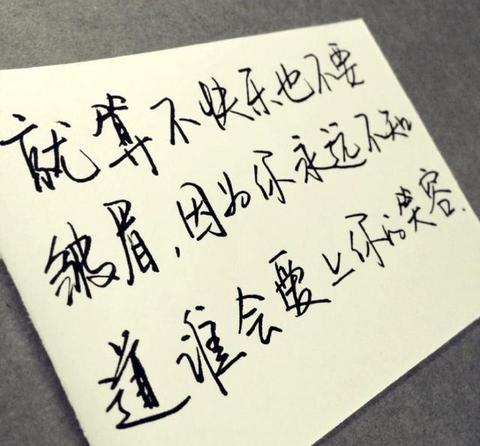 就算不快乐也不要
皱眉,因为你永远不知
道谁会爱上你的笑容.